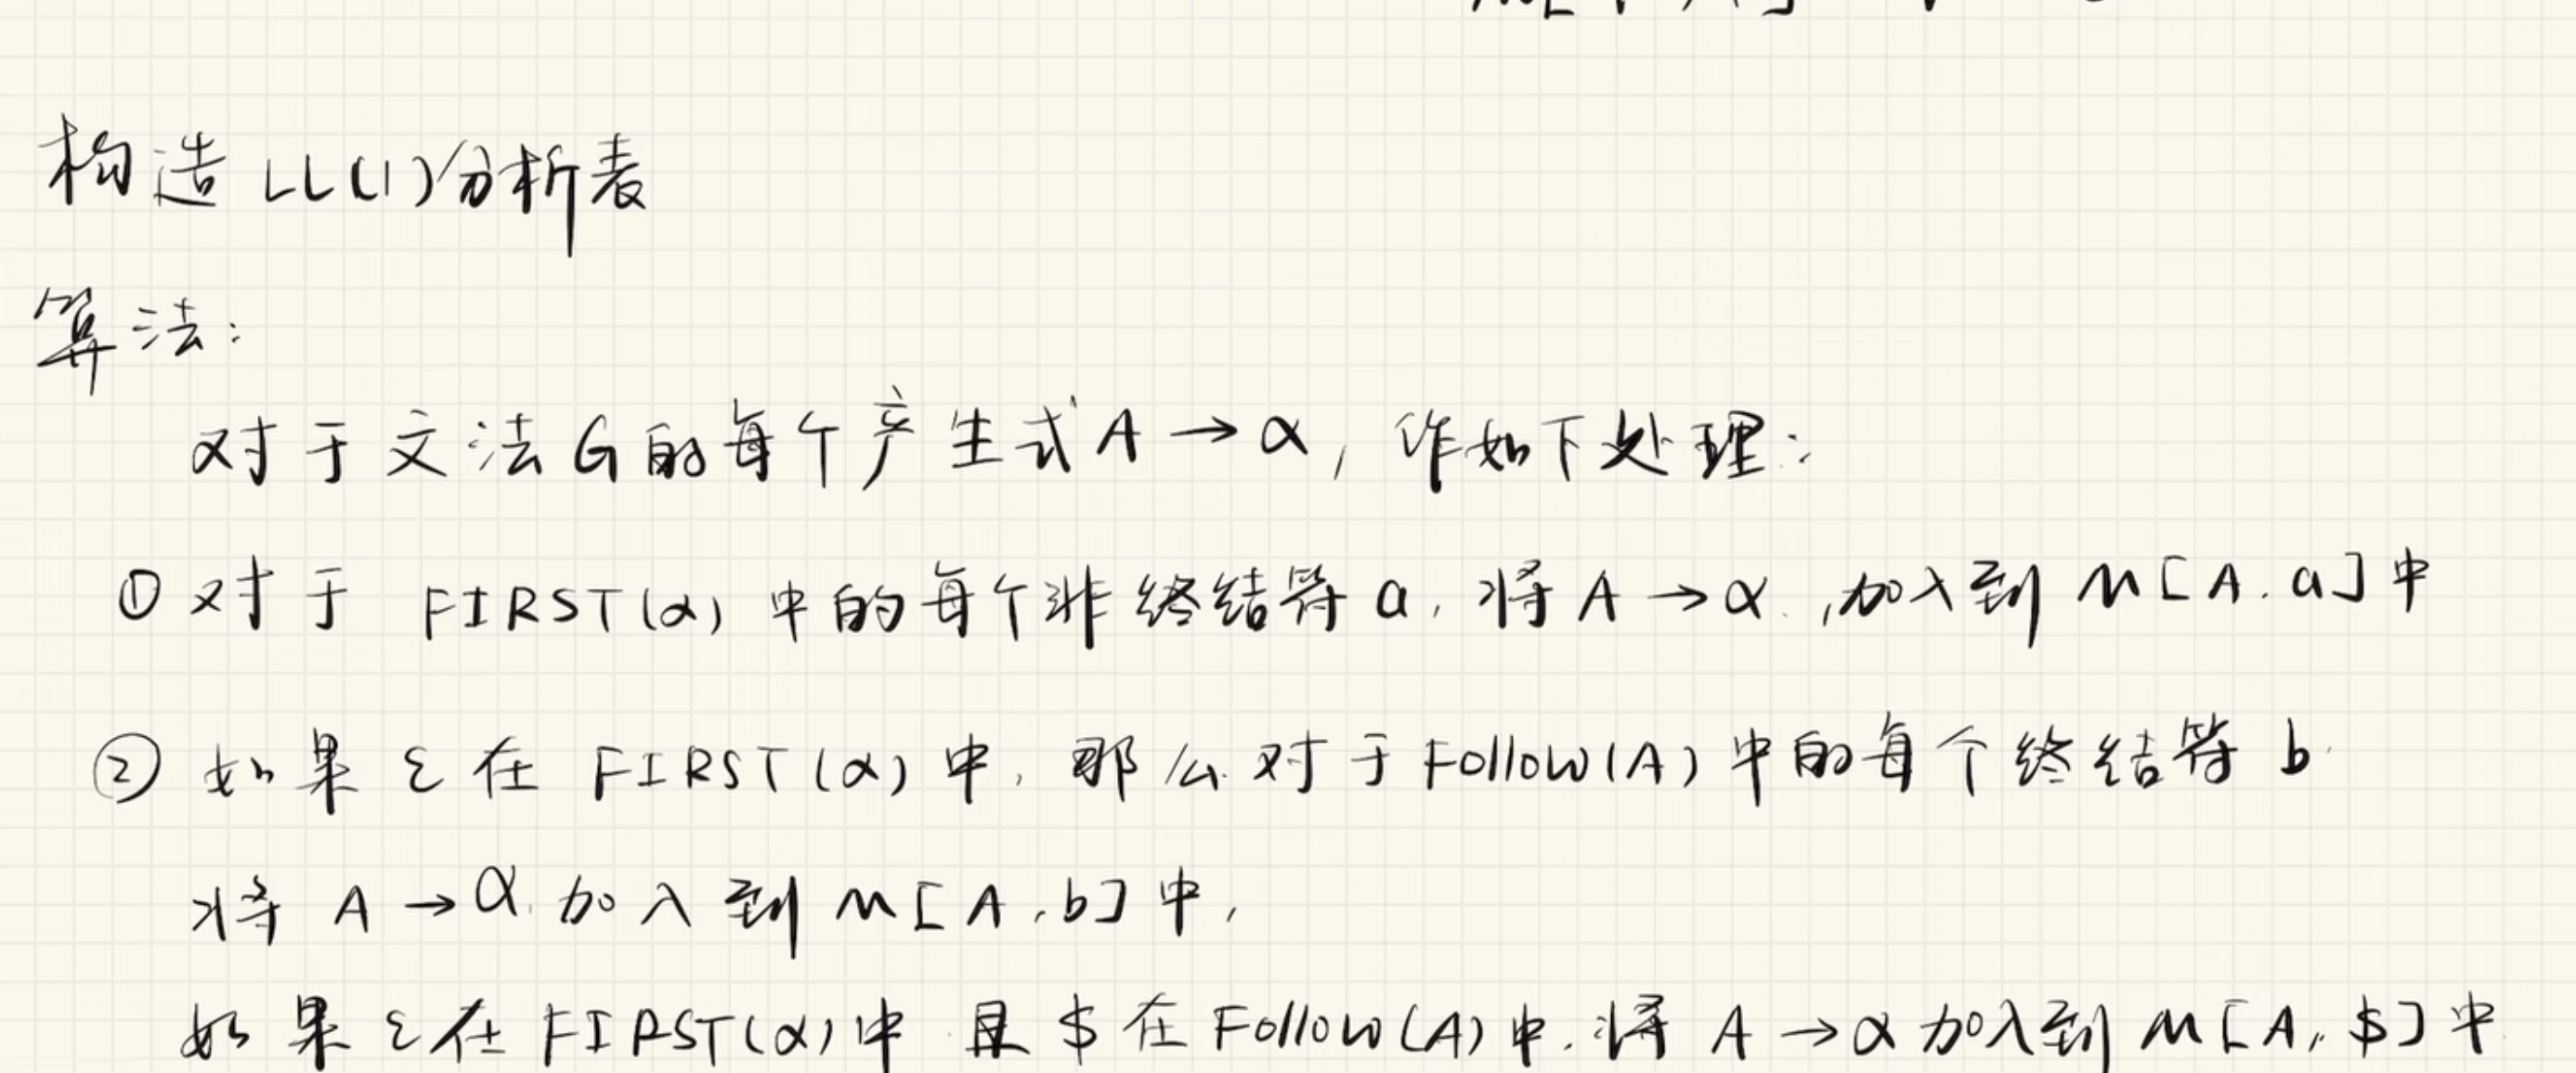 构造 LL(1)分析表
算法:
对于文法G的每个产生式A→α, 作如下处理:
①对于 FIRST(α) 中的每个非终结符 a, 将 A→α, 加入到 M[A,a]中
② 如果 ε在 FIRST(α)中, 那么对于Follow(A)中的每个终结符 b
将 A→α 加入到 M[A,b]中,
如果 ε在FIRST(α)中 且 $在Follow(A)中, 将 A→α加入到M[A,$]中